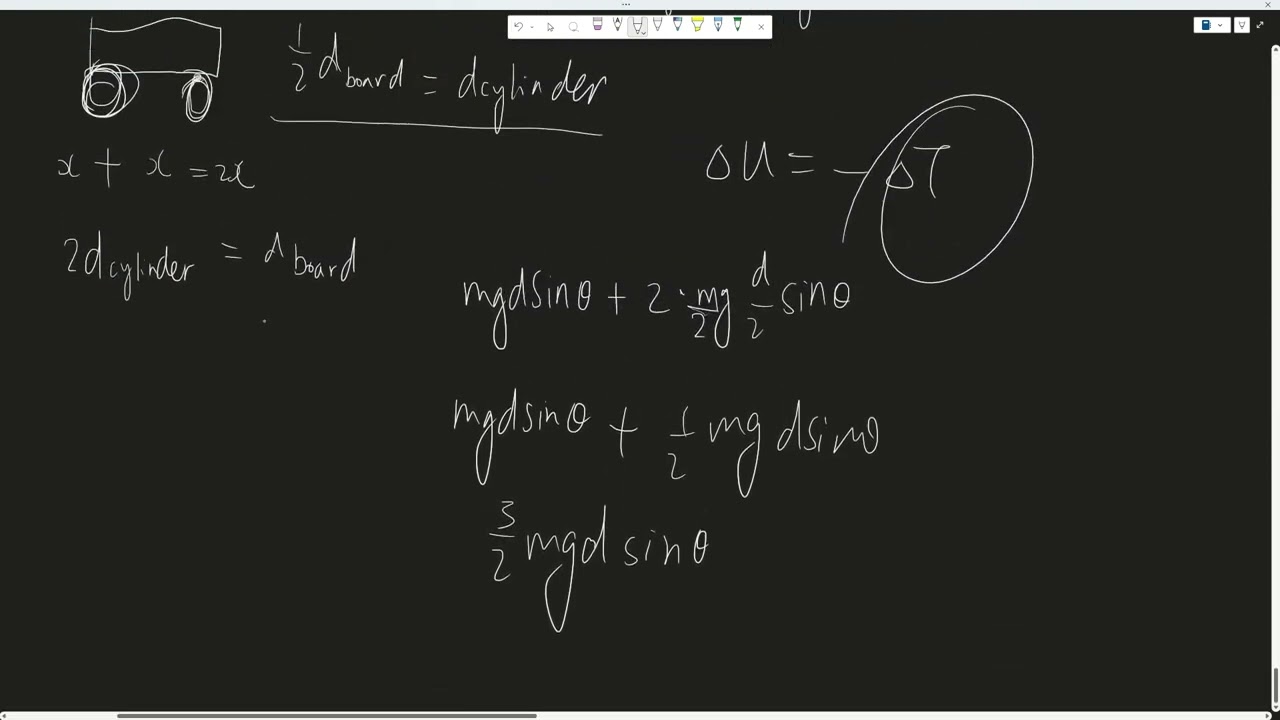 ½ d board = dcylinder
x + x = 2x
ΔU = − ΔT
2dcylinder = dboard
mgdsinθ + 2 · m/2 g d/2 sinθ
mgdsinθ + ½ mg dsinθ
3/2 mgd sinθ